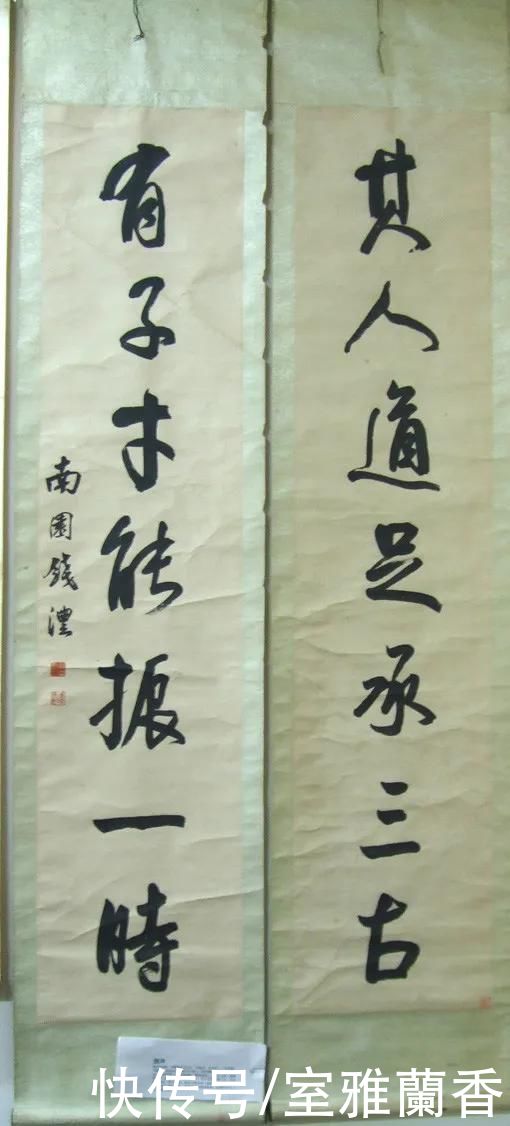 其人道足承三古
有子才能振一時
南園錢灃
快传号/室雅蘭香